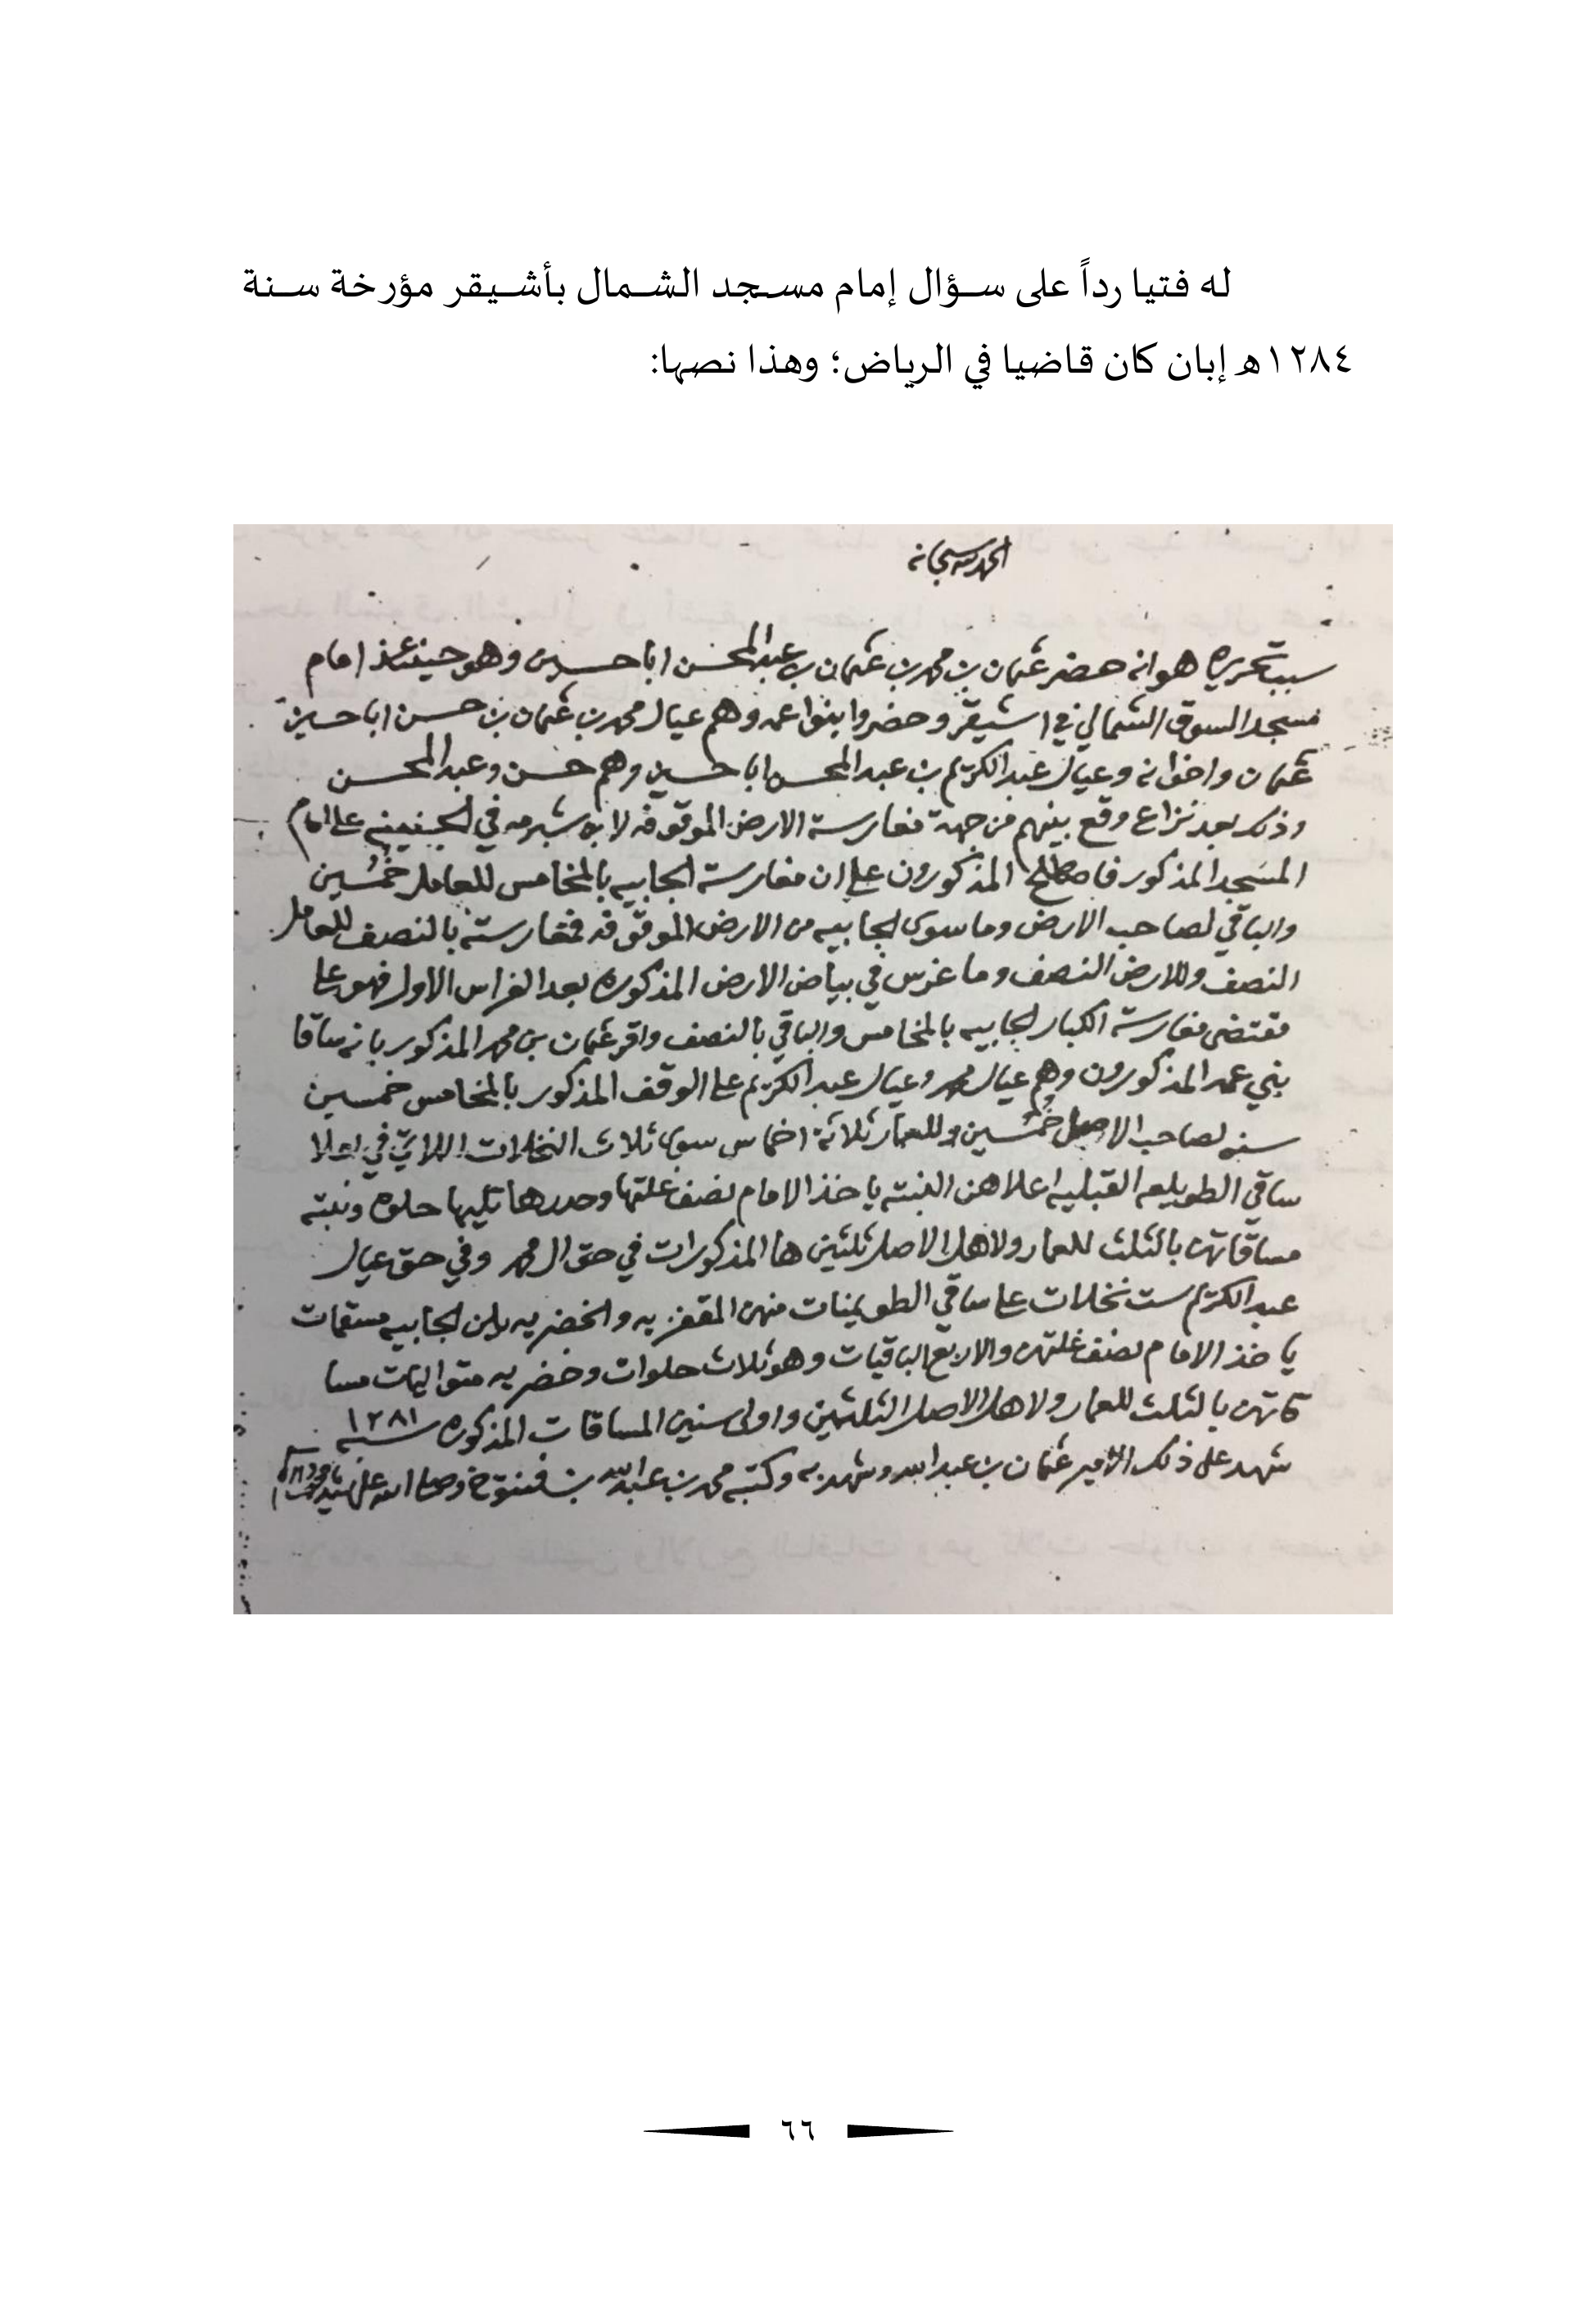 له فتيا رداً على سؤال إمام مسجد الشمال بأشيقر مؤرخة سنة
١٢٨٤ه إبان كان قاضيا في الرياض؛ وهذا نصها:
الحمد لله سبحانه
سبب تحريره هو انه حضر عثمان بن محمد بن عثمان بن عبدالمحسن اباحسين وهو حينئذ امام
مسجد السوق الشمالي في اشيقر وحضروا بنوا عمه وهم عيال محمد بن عثمان بن حسن اباحسين
عثمان واخوانه وعيال عبدالكريم بن عبدالمحسن اباحسين وهم حسن وعبدالمحسن
وذلك بعد نزاع وقع بينهم من جهة مغارسة الارض الموقوفه لابن شبرمه في الجفيفيه على امام
المسجد المذكور فاصطلح المذكورون على ان مغارسة الجابيه بالمخامس للعامل خمسين
والباقي لصاحب الارض وما سوى الجابيه من الارض الموقوفه فمغارسته بالنصف للعامل
النصف وللارض النصف وما غرس في بياض الارض المذكوره بعد الغراس الاول فهو على
مقتضى مغارسة الكبار الجابيه بالمخامس والباقي بالنصف واقر عثمان بن محمد المذكور بانه ساقا
بني عمه المذكورون وهم عيال محمد وعيال عبدالكريم على الوقف المذكور بالمخامس خمسين
سنه لصاحب الاصل خمسين وللعمار ثلاثة اخماس سوى ثلاث النخلات اللاتي في اعلا
ساقي الطويلعه القبليه اعلاهن النبته ياخذ الامام نصف غلتها وحدرها تليها حلوه ونبته
مساقاتهن بالثلث للعمار ولاهل الاصل ثلثين ها المذكورات في حق ال محمد وفي حق عيال
عبدالكريم ست نخلات على ساقي الطويمنات منهن المقفزيه والخضريه يلين الجابيه مستقمات
ياخذ الامام نصف غلتهن والاربع الباقيات وهو ثلاث حلوات وخضريه متواليات مسا
قاتهن بالثلث للعمار ولاهل الاصل الثلثين واولى سنين المساقات المذكوره سنة ١٢٨١
شهد على ذلك الامير عثمان بن عبدالله وشهد به وكتبه محمد بن عبدالله بن فنتوخ وصلى الله على سيدنا محمد
٦٦